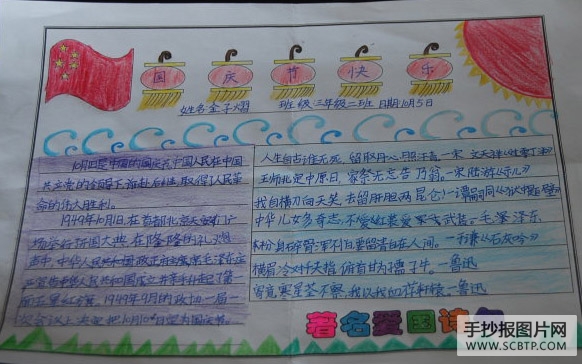 国 庆 节 快 乐
姓名金子熠 班级三年级二班 日期10月5日
10月1日是中国的国庆节,中国人民在中国
共产党的领导下,前赴后继,取得了人民革
命的伟大胜利。
1949年10月1日,在首都北京天安门广
场举行开国大典,在隆隆的礼炮
声中,中华人民共和国
宣告中华人民共和国成立并亲手升起了第
一面五星红旗。1949年9月的政协一届一
次会议上决定把10月1日定为国庆节。
人生自古谁无死,留取丹心照汗青。—宋 文天祥
王师北定中原日,家祭无忘告乃翁。—宋陆游《示儿》
我自横刀向天笑,去留肝胆两昆仑!—谭嗣同《狱中题壁》
中华儿女多奇志,不爱红装爱武装—毛泽东
粉身碎骨浑不怕,要留清白在人间。—于谦《石灰吟》
横眉冷对千夫指,俯首甘为孺子牛。—鲁迅
寄意寒星荃不察,我以我血荐轩辕。—鲁迅
著名爱国诗句
手抄报图片网
WWW.SCBTP.COM